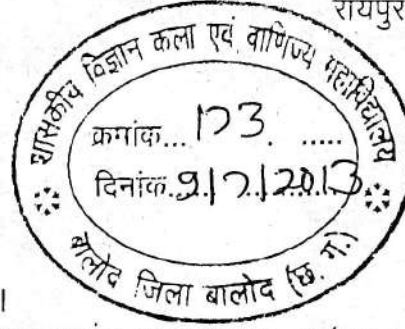 रायपुर
शासकीय विज्ञान कला एवं वाणिज्य महाविद्यालय
क्रमांक... 173. .....
दिनांक. 9/7/2013
बालोद जिला बालोद (छ. ग.)
।